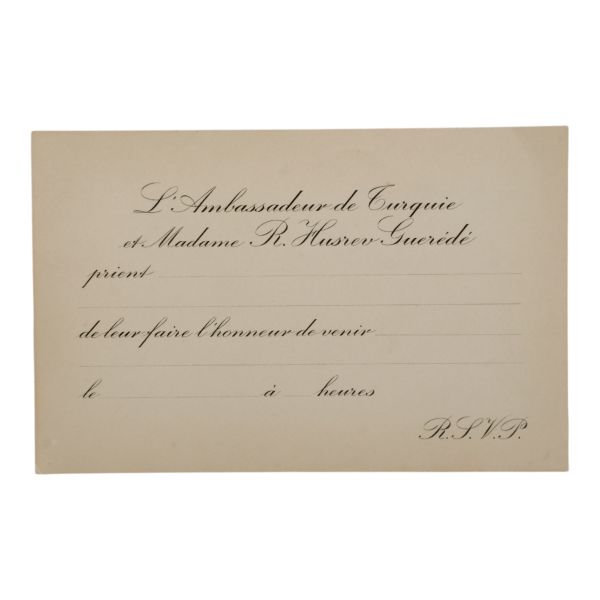 L'Ambassadeur de Turquie
et Madame R. Husrev Guerédé
prient
de leur faire l'honneur de venir
le à heures
R.S.V.P.